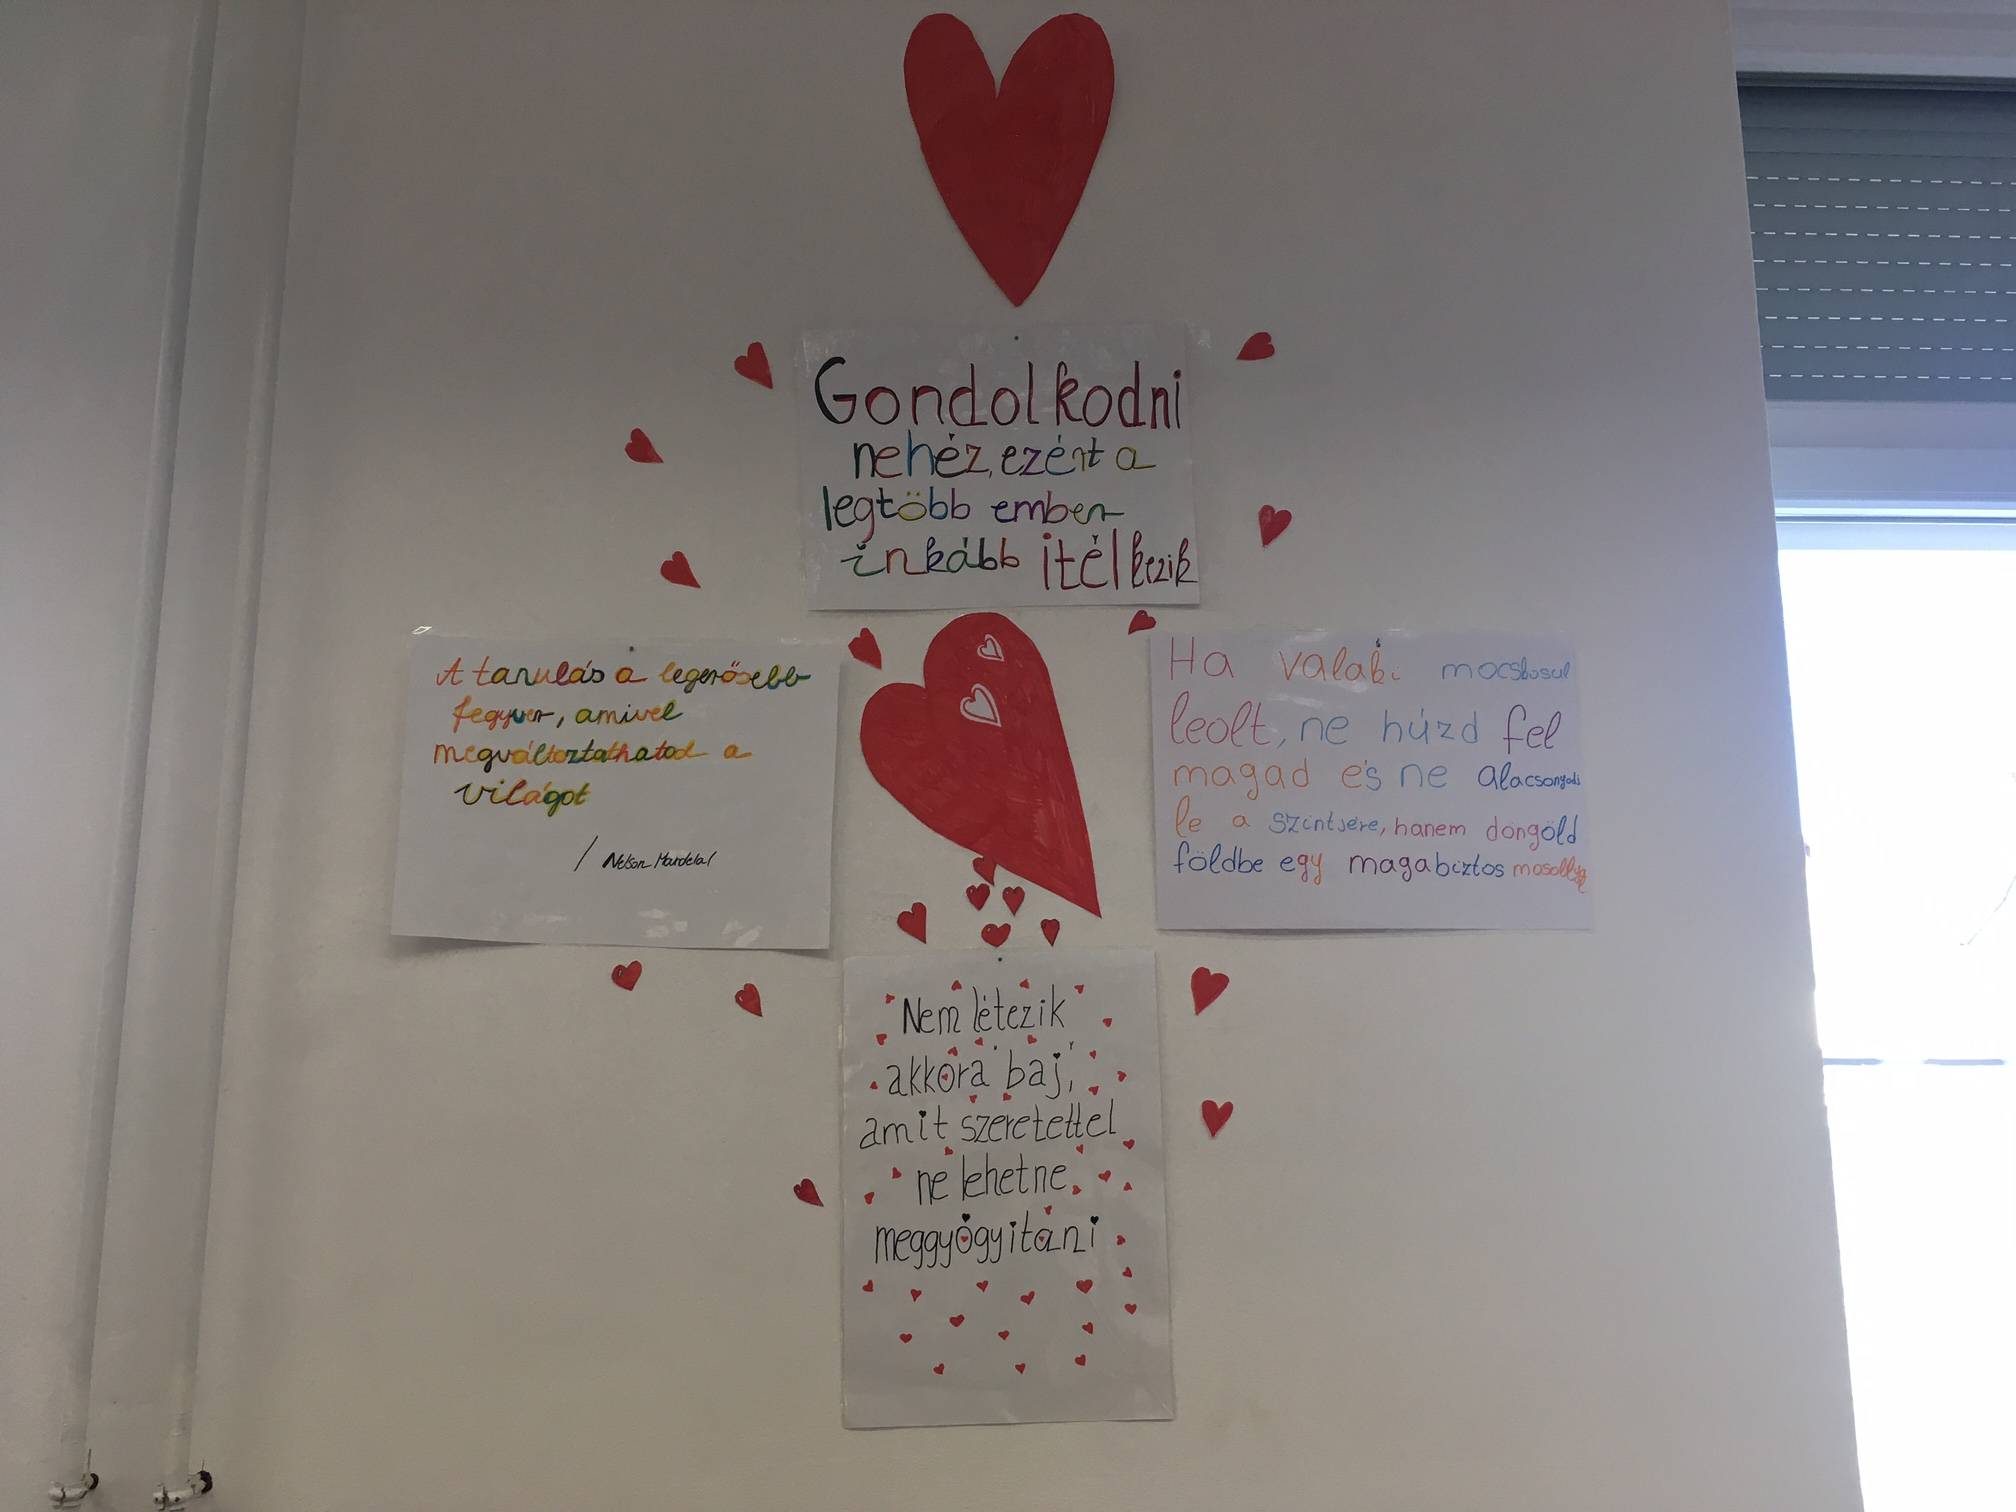 Gondolkodni
nehéz, ezért a
legtöbb ember
inkább itélkezik
A tanulás a legerősebb
fegyver, amivel
megváltoztathatod a
világot
/ Nelson Mandela/
Ha valaki mocskosul
leolt, ne húzd fel
magad és ne alacsonyodj
le a szintjére, hanem döngöld
földbe egy magabiztos mosollyal
Nem létezik
akkora baj,
amit szeretettel
ne lehetne
meggyógyitani